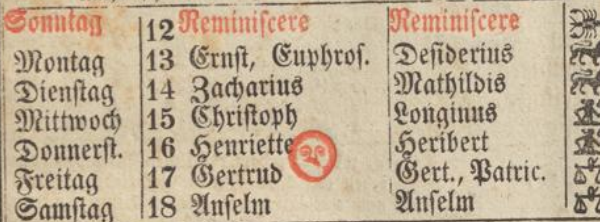 Sonntag 12 Reminiſcere Reminiſcere
Montag 13 Ernſt, Euphroſ. Deſiderius
Dienſtag 14 Zacharius Mathildis
Mittwoch 15 Chriſtoph Longinus
Donnerſt. 16 Henriette Heribert
Freitag 17 Gertrud Gert., Patric.
Samſtag 18 Anſelm Anſelm